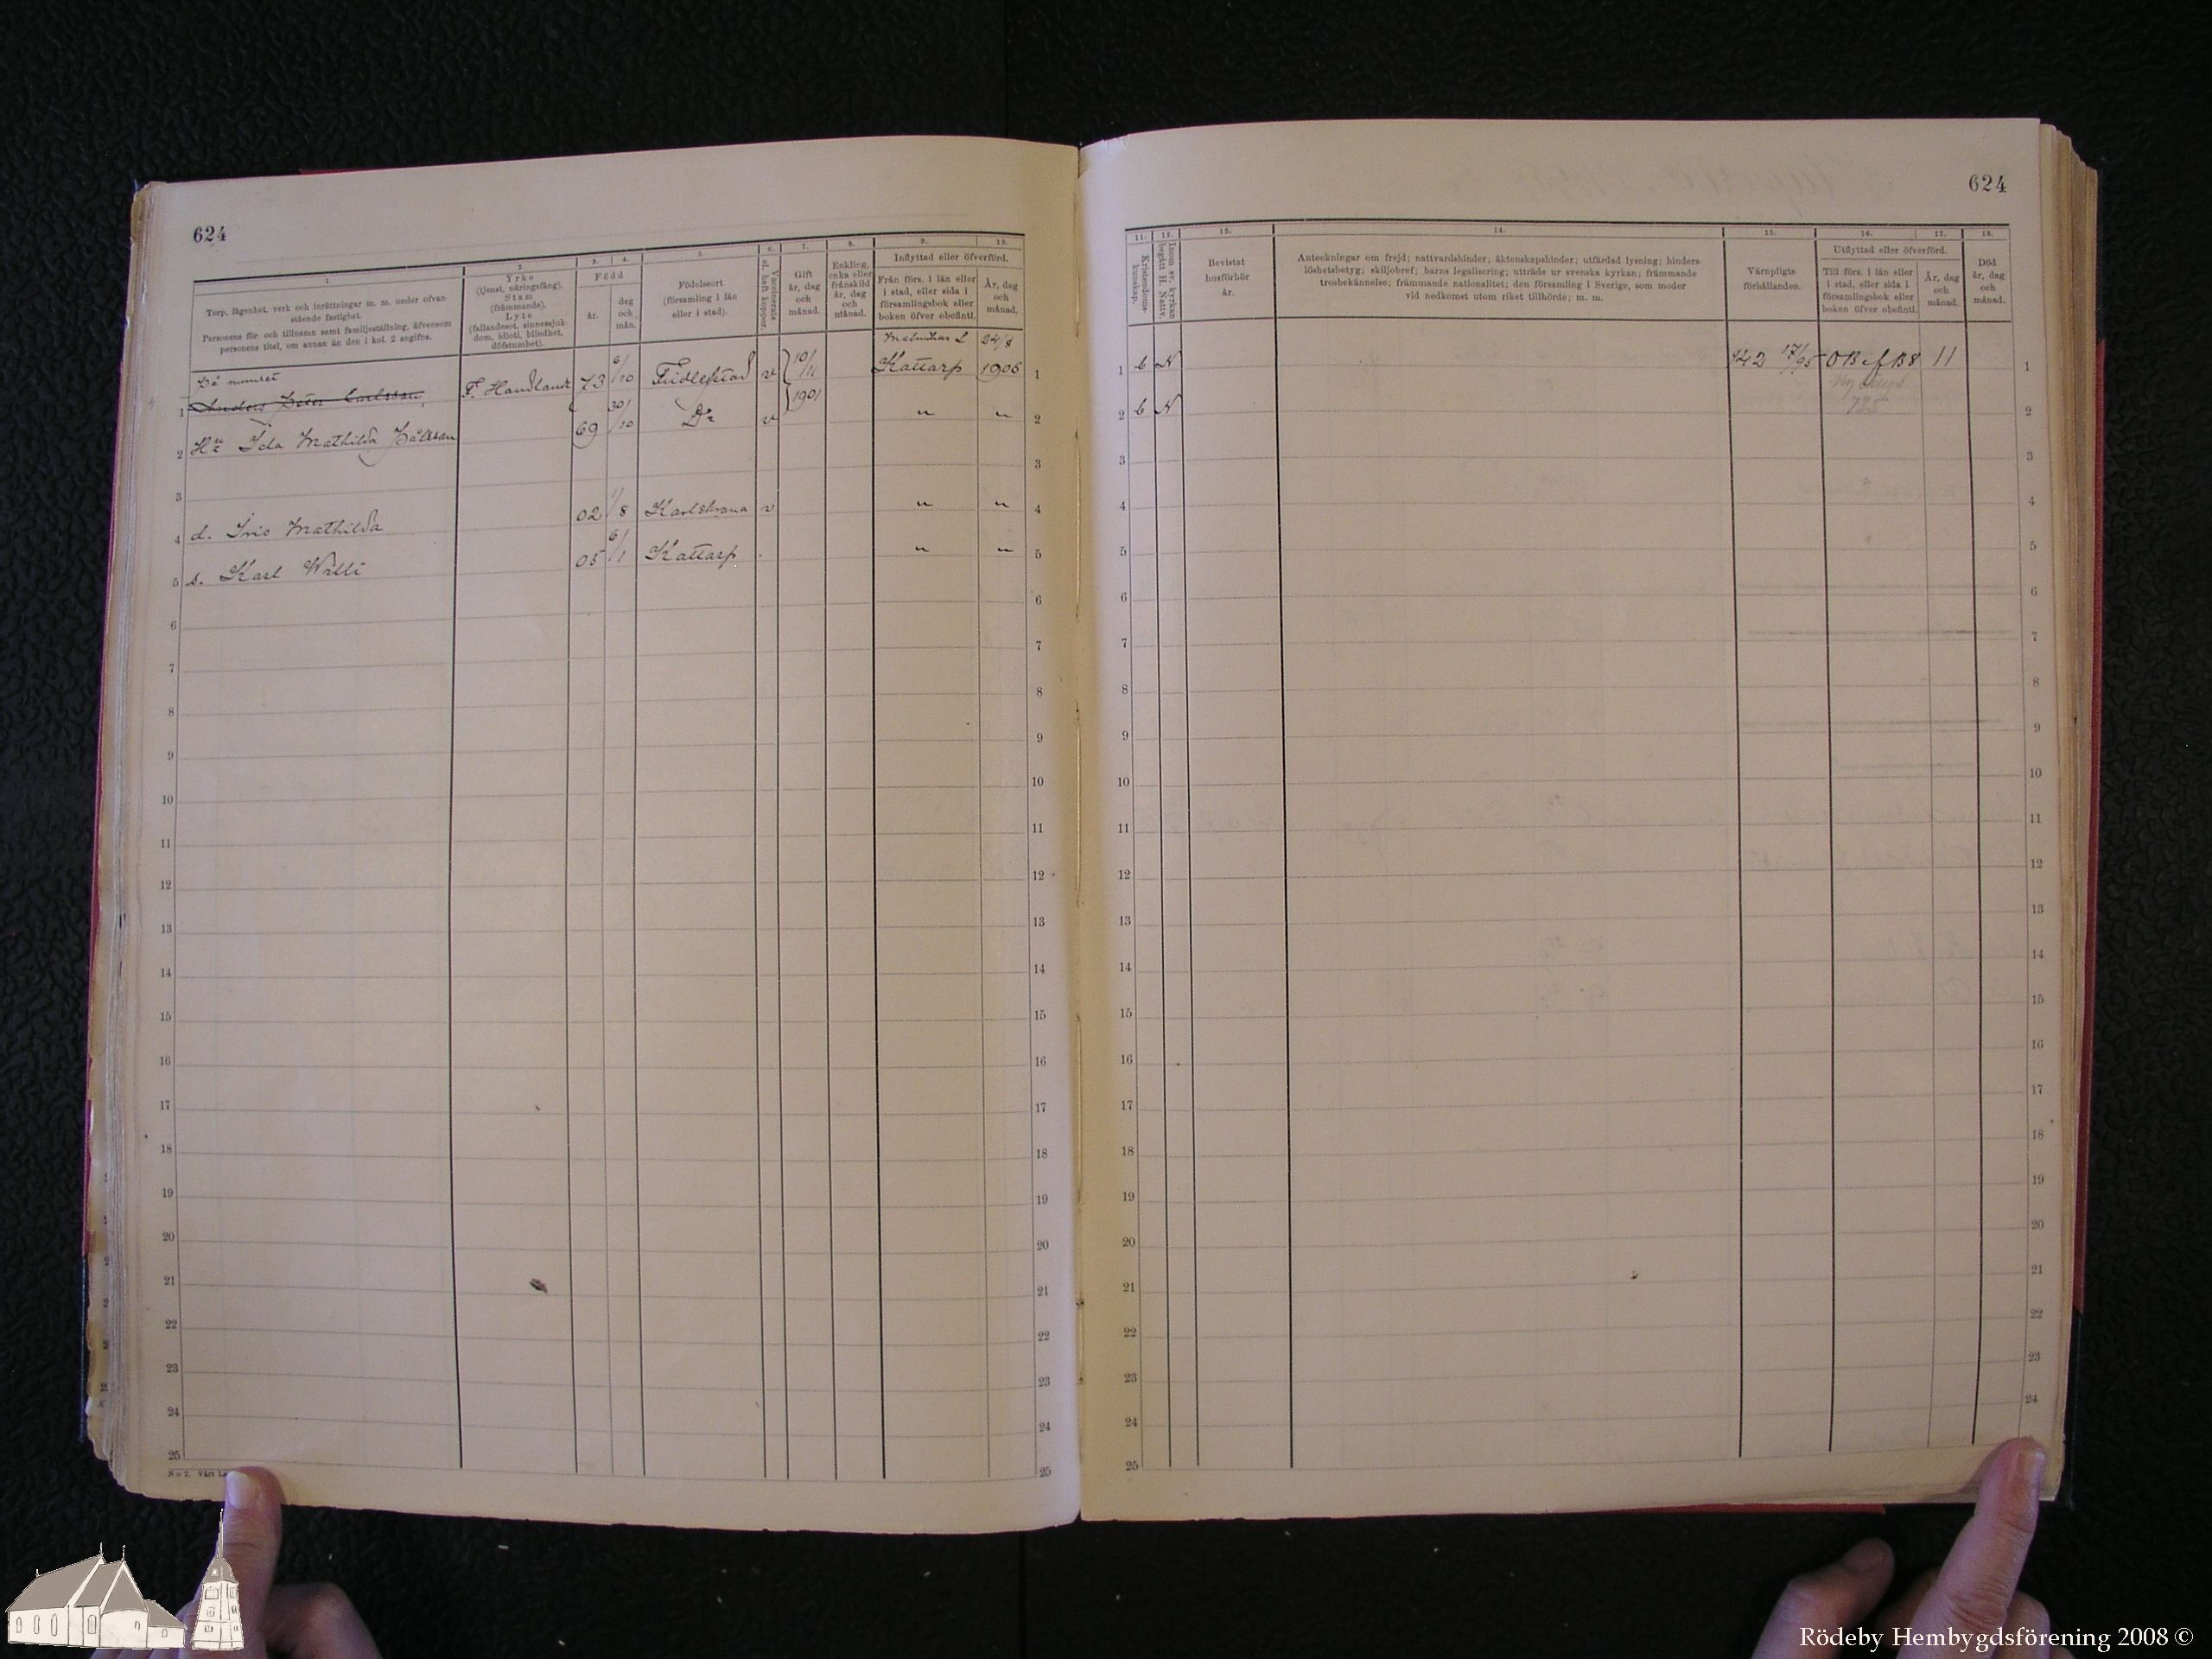 624
1.
Torp, lägenhet, verk och inrättningar m. m. under ofvan-
stående fastighet.
Personens för- och tillnamn samt familjeställning, äfvensom
personens titel, om annan än den i kol. 2 angifna.
2.
Yrke
(tjenst, näringsfång).
Stam
(främmande).
Lyte
(fallandesot, sinnessjuk-
dom, idioti, blindhet,
döfstumhet).
3. 4.
Född
år.
dag
och
mån.
5.
Födelseort
(församling i län
eller i stad).
6.
Vaccinerats
el. haft koppor.
7.
Gift
år, dag
och
månad.
8.
Enkling,
enka eller
frånskild
år, dag
och
månad.
9. 10.
Inflyttad eller öfverförd.
Från förs. i län eller
i stad, eller sida i
församlingsbok eller
boken öfver obefintl.
År, dag
och
månad.
På numret
Malmöhus L 24/8
1 Anders Peter Carlsson, F. Handlande 73 6/10 Fridlefstad v 10/11 1901 Kattarp 1906 1
2 Hu Ida Mathilda Pålsson 69 30/10 Do v " " 2
3 3
4 d. Iris Mathilda 02 1/8 Karlskrona v " " 4
5 s. Karl Willi 05 6/1 Kattarp " " 5
6 6
7 7
8 8
9 9
10 10
11 11
12 12
13 13
14 14
15 15
16 16
17 17
18 18
19 19
20 20
21 21
22 22
23 23
24 24
25 25
No 2. Vårt
624
11.
Kristendoms-
kunskap.
12.
Inom sv. kyrkan
begått H. Nattv.
13.
Bevistat
husförhör
år.
14.
Anteckningar om frejd; nattvardshinder; äktenskapshinder; utfärdad lysning; hinders-
löshetsbetyg; skiljobref; barns legalisering; utträde ur svenska kyrkan; främmande
trosbekännelse; främmande nationalitet; den församling i Sverige, som moder
vid nedkomst utom riket tillhörde; m. m.
15.
Värnpligts-
förhållanden.
16. 17.
Utflyttad eller öfverförd.
Till förs. i län eller
i stad, eller sida i
församlingsbok eller
boken öfver obefintl.
År, dag
och
månad.
18.
Död
år, dag
och
månad.
1 b N 142 17/95 OB f B8 11 1
2 b N 2
3 3
4 4
5 5
6 6
7 7
8 8
9 9
10 10
11 11
12 12
13 13
14 14
15 15
16 16
17 17
18 18
19 19
20 20
21 21
22 22
23 23
24 24
25
Rödeby Hembygdsförening 2008 ©